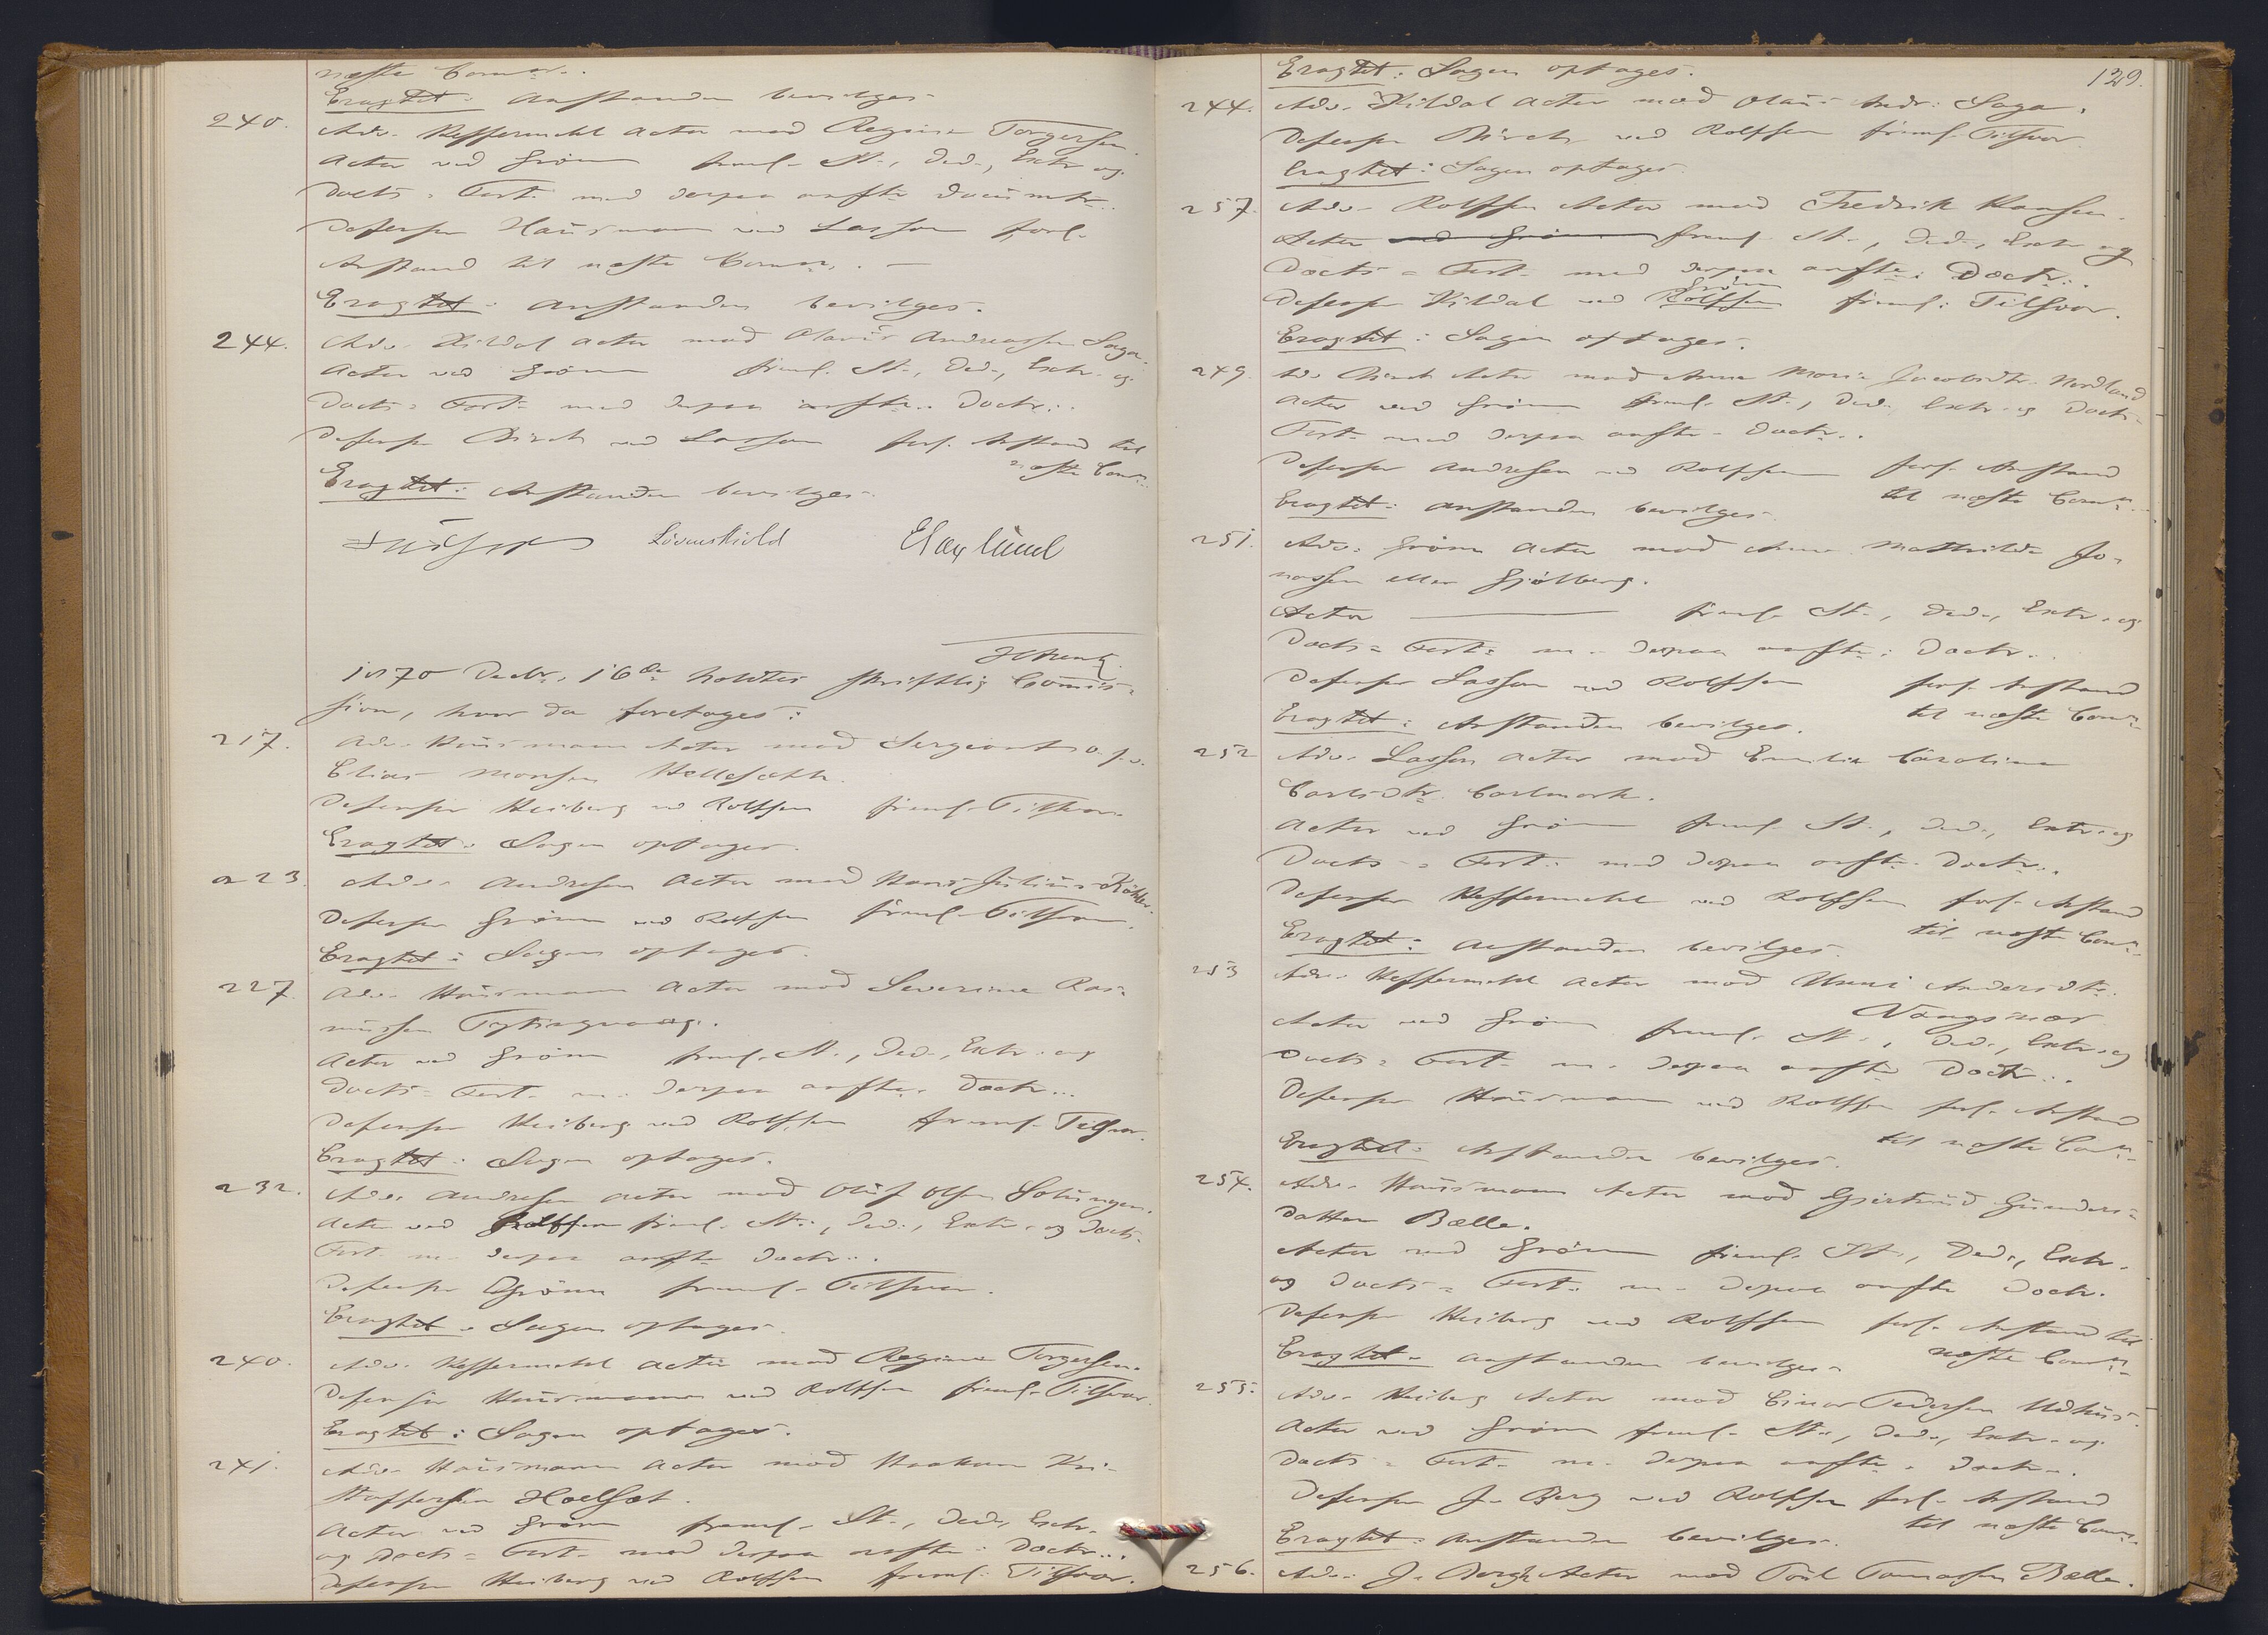 næste Comon..
Eragtet: Anstanden bevilges
240. Adv. Heffermehl Actor mod Regine Torgersen.
Actor ved Grönn freml. St., Ded., Extr. og
Docts. Fort. med derpaa anfte Documtr..
Defensor Hausmann ved Lasson forl.
Anstand til næste Comon.. —
Eragtet: Anstanden bevilges.
244. Adv. Kildal Actor mod Olaus Andreassen Saga.
Actor ved Grönn freml. St., Ded., Extr. og
Docts. Fort. med derpaa anfte. Doctr..
Defensor Birch ved Lasson forl. Anstand til
næste Comon..
Eragtet: Anstanden bevilges.
Løvenskiold
1870 Decbr. 16de holdtes skriftlig Commis-
sion, hvor da foretages:
217. Adv. Hausmann Actor mod Sergeant o.f.v.
Elias Monsen Hellesæth.
Defensor Heiberg ved Rolfsen freml. Tilsvar.
Eragtet: Sagen optages.
223. Adv. Andresen Actor mod Hans Julius Köhler.
Defensor Grönn ved Rolfsen freml. Tilsvar.
Eragtet: Sagen optages.
227. Adv. Hausmann Actor mod Severine Ras-
mussen Tytingvaag.
Actor ved Grönn freml. St., Ded., Extr. og
Docts. Fort. m. derpaa anfte. Doctr...
Defensor Heiberg ved Rolfsen freml. Tilsvar.
Eragtet: Sagen optages.
232. Adv. Andresen Actor mod Oluf Olsen Solungen.
Actor ved Rolfsen freml. St., Ded., Extr. og Docts.
Fort. m. derpaa anfte Doctr..
Defensor Grönn freml. Tilsvar.
Eragtet: Sagen optages.
240. Adv. Heffermehl Actor mod Regine Torgersen.
Defensor Hausmann ved Rolfsen freml. Tilsvar.
Eragtet: Sagen optages.
241. Adv. Hausmann Actor mod Haakon Kri-
stoffersen Hoelsæt.
Actor ved Grönn freml. St., Ded., Extr.
og Docts. Fort. med derpaa anfte. Doctr...
Defensor Heiberg ved Rolfsen freml. Tilsvar.
129.
Eragtet: Sagen optages.
244. Adv. Kildal Actor mod Olaus Andr. Saga.
Defensor Birch ved Rolfsen freml. Tilsvar.
Eragtet: Sagen optages.
257. Adv. Rolfsen Actor mod Fredrik Hansen.
Actor ved Grönn freml. St., Ded., Extr. og
Docts. Fort. med derpaa anfte. Doctr..
Defensor Kildal ved Rolfsen Grönn freml. Tilsvar.
Eragtet: Sagen optages.
249. Adv. Birch Actor mod Anna Maria Jacobsdtr. Nordland
Actor ved Grönn freml. St., Ded., Extr. og Docts.
Fort. med derpaa anfte. Doctr..
Defensor Andresen ved Rolfsen forl. Anstand
til næste Comon..
Eragtet: Anstanden bevilges.
251. Adv. Grönn Actor mod Anna Mathilde Jo-
nassen eller Gjölberg.
Actor —— freml. St., Ded., Extr. og
Docts. Fort. m. derpaa anfte. Doctr..
Defensor Lasson ved Rolfsen forl. Anstand
til næste Comon.
Eragtet: Anstanden bevilges.
252 Adv. Lasson Actor mod Emilie Caroline
Carlsdtr. Carlmark.
Actor ved Grönn freml. St., Ded., Extr. og
Docts. Fort. med derpaa anfte. Doctr...
Defensor Heffermehl ved Rolfsen forl. Anstand
til næste Comon.
Eragtet: Anstanden bevilges.
253 Adv. Heffermehl Actor mod Unni Andersdtr.
Vangsnæs
Actor ved Grönn freml. St., Ded., Extr. og
Docts. Fort. m. derpaa anfte Doctr...
Defensor Hausmann ved Rolfsen forl. Anstand
til næste Comon.
Eragtet: Anstanden bevilges.
254. Adv. Hausmann Actor mod Gjertrud Gunders-
datter Bælle.
Actor ved Grönn freml. St., Ded., Extr.
og Docts. Fort. m. derpaa anfte Doctr.
Defensor Heiberg ved Rolfsen forl. Anstand til
næste Comon.
Eragtet: Anstanden bevilges.
255. Adv. Heiberg Actor mod Einar Pedersen Udhus.
Actor ved Grönn freml. St., Ded., Extr. og
Docts. Fort. m. derpaa anfte. Doctr..
Defensor J. Berg ved Rolfsen forl. Anstand
til næste Comon.
Eragtet: Anstanden bevilges.
256. Adv. J. Bergh Actor mod Toril Tomassen Bælle.